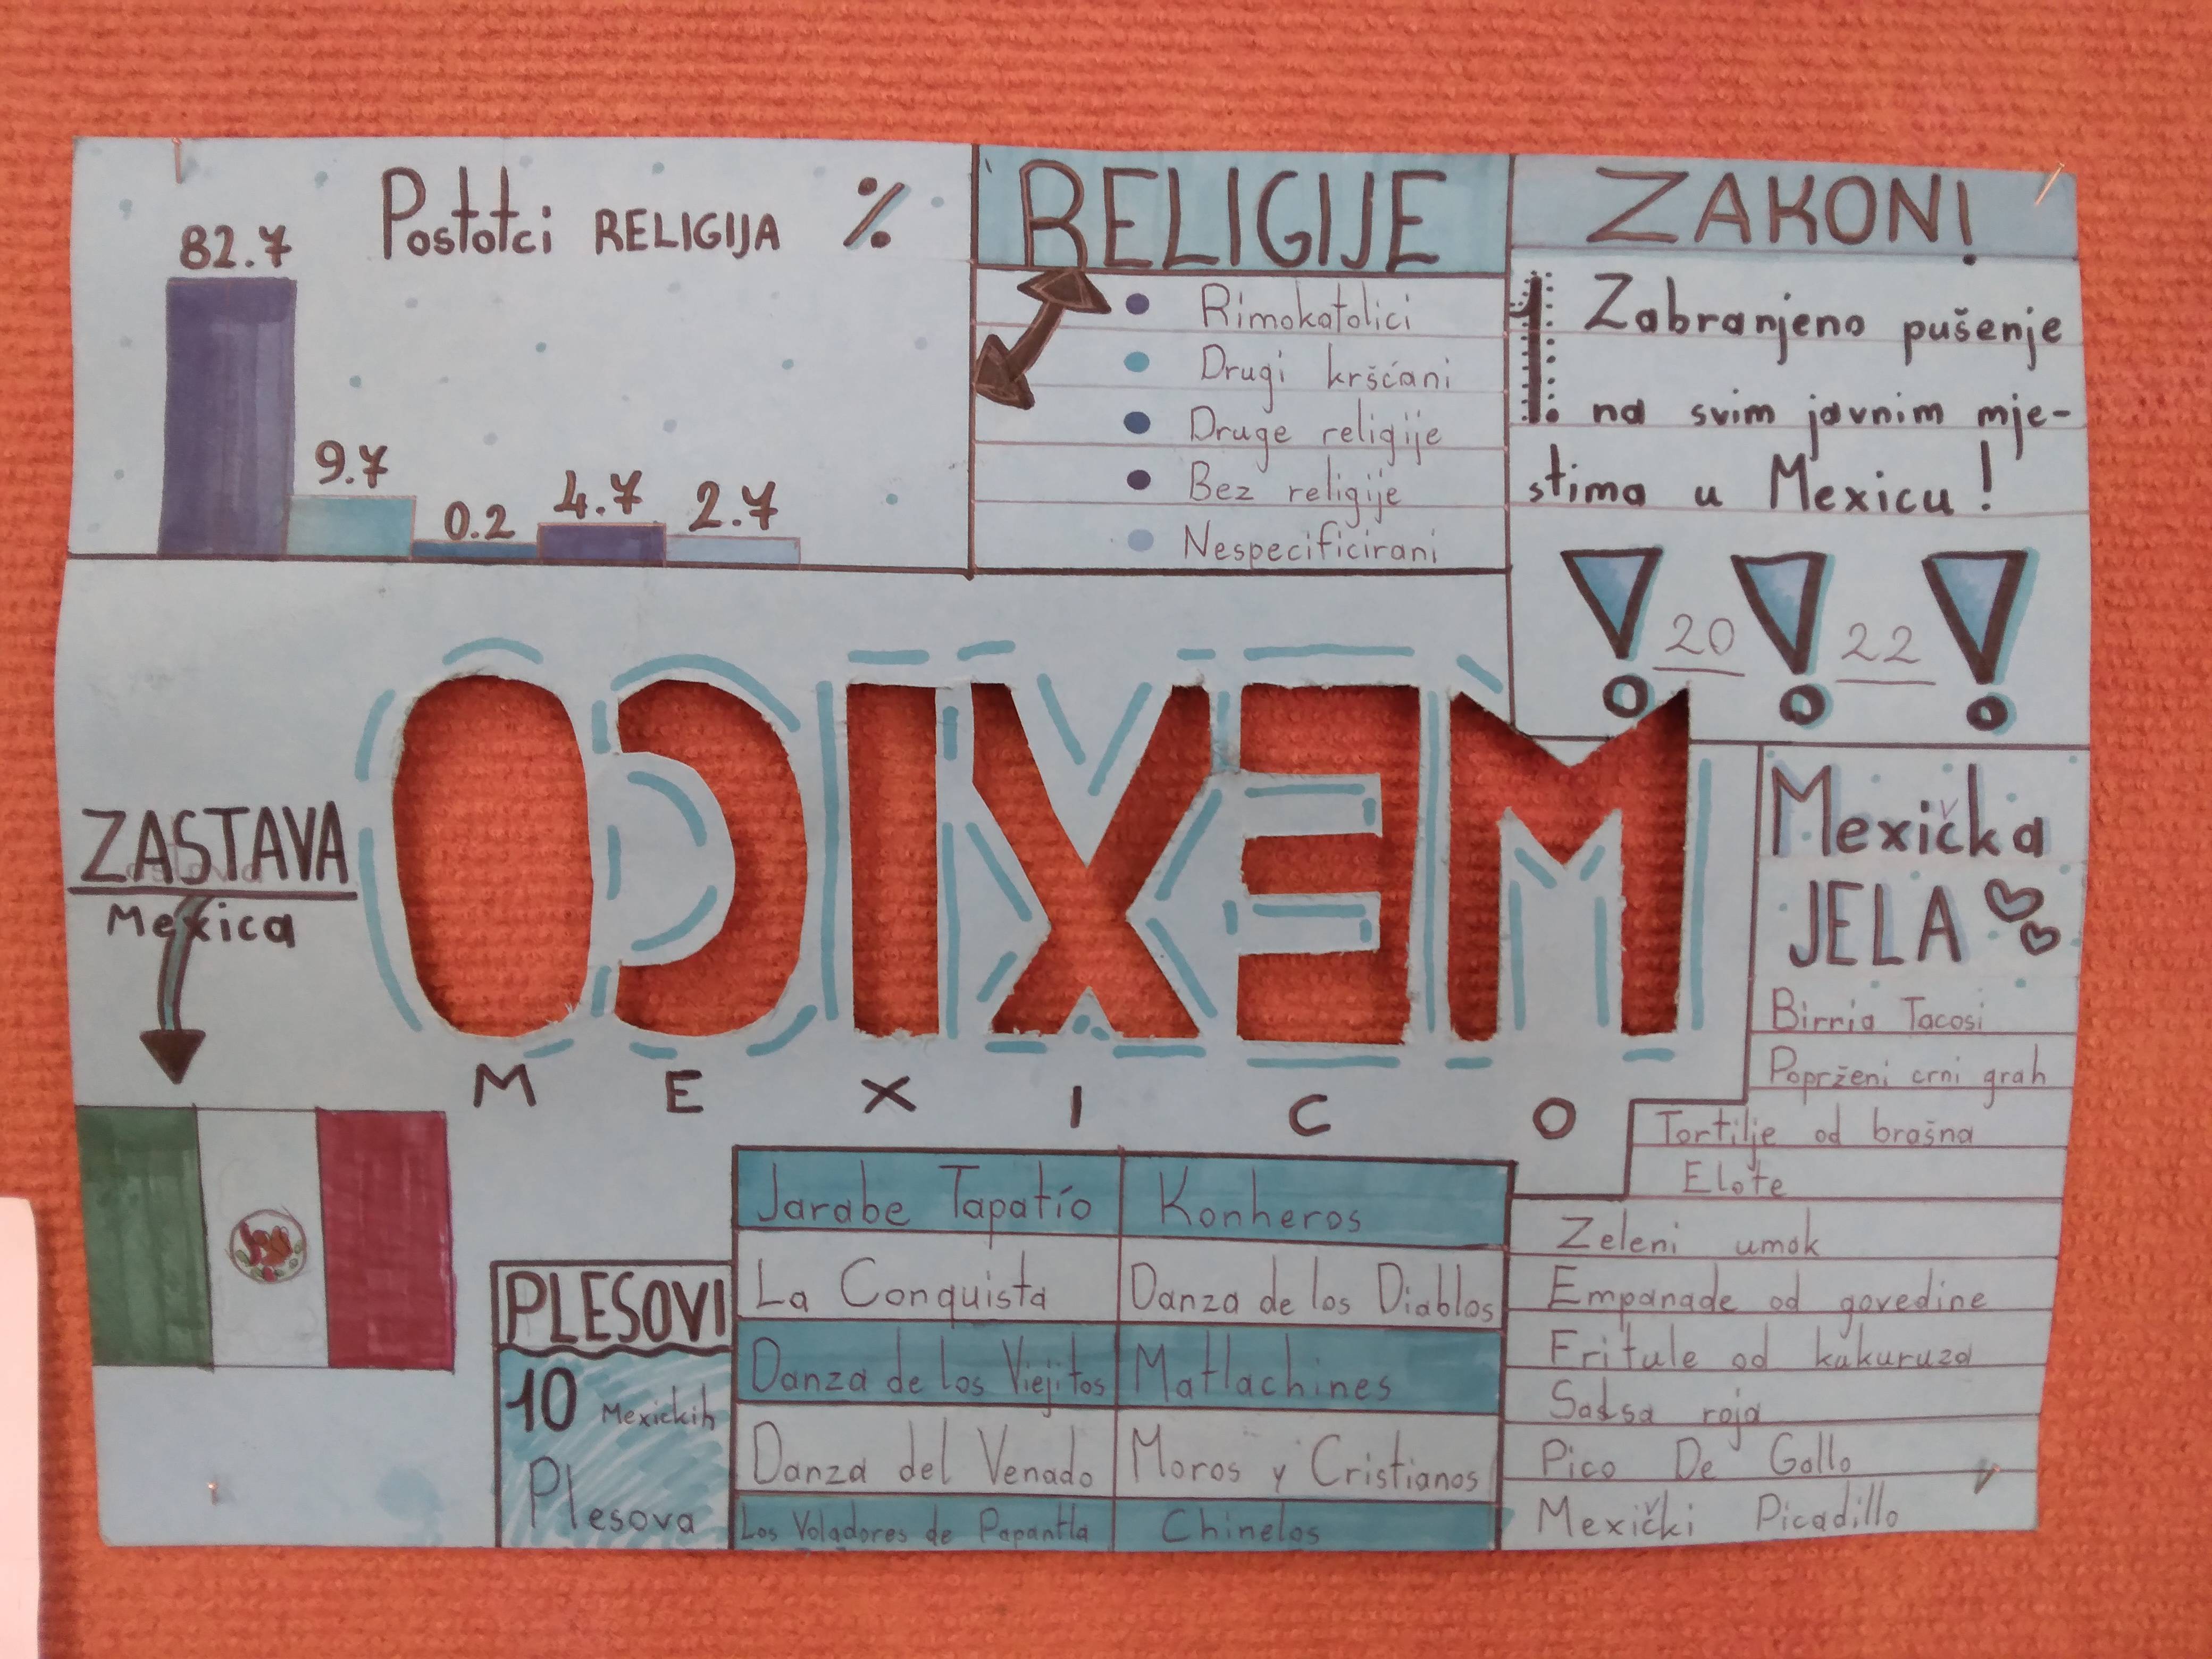 Postotci RELIGIJA %
82.7
9.7
0.2
4.7
2.7
RELIGIJE
Rimokatolici
Drugi kršćani
Druge religije
Bez religije
Nespecificirani
ZAKONI
1. Zabranjeno pušenje
na svim javnim mje-
stima u Mexicu!
20 22
ZASTAVA
Mexica
MEXICO
M E X I C O
Mexička
JELA
Birria Tacosi
Poprženi crni grah
Tortilje od brašna
Elote
Zeleni umak
Empanade od govedine
Fritule od kukuruza
Salsa roja
Pico De Gallo
Mexički Picadillo
PLESOVI
10 Mexickih
Plesova
Jarabe Tapatío
Konheros
La Conquista
Danza de los Diablos
Danza de los Viejitos
Matlachines
Danza del Venado
Moros y Cristianos
Los Voladores de Papantla
Chinelos